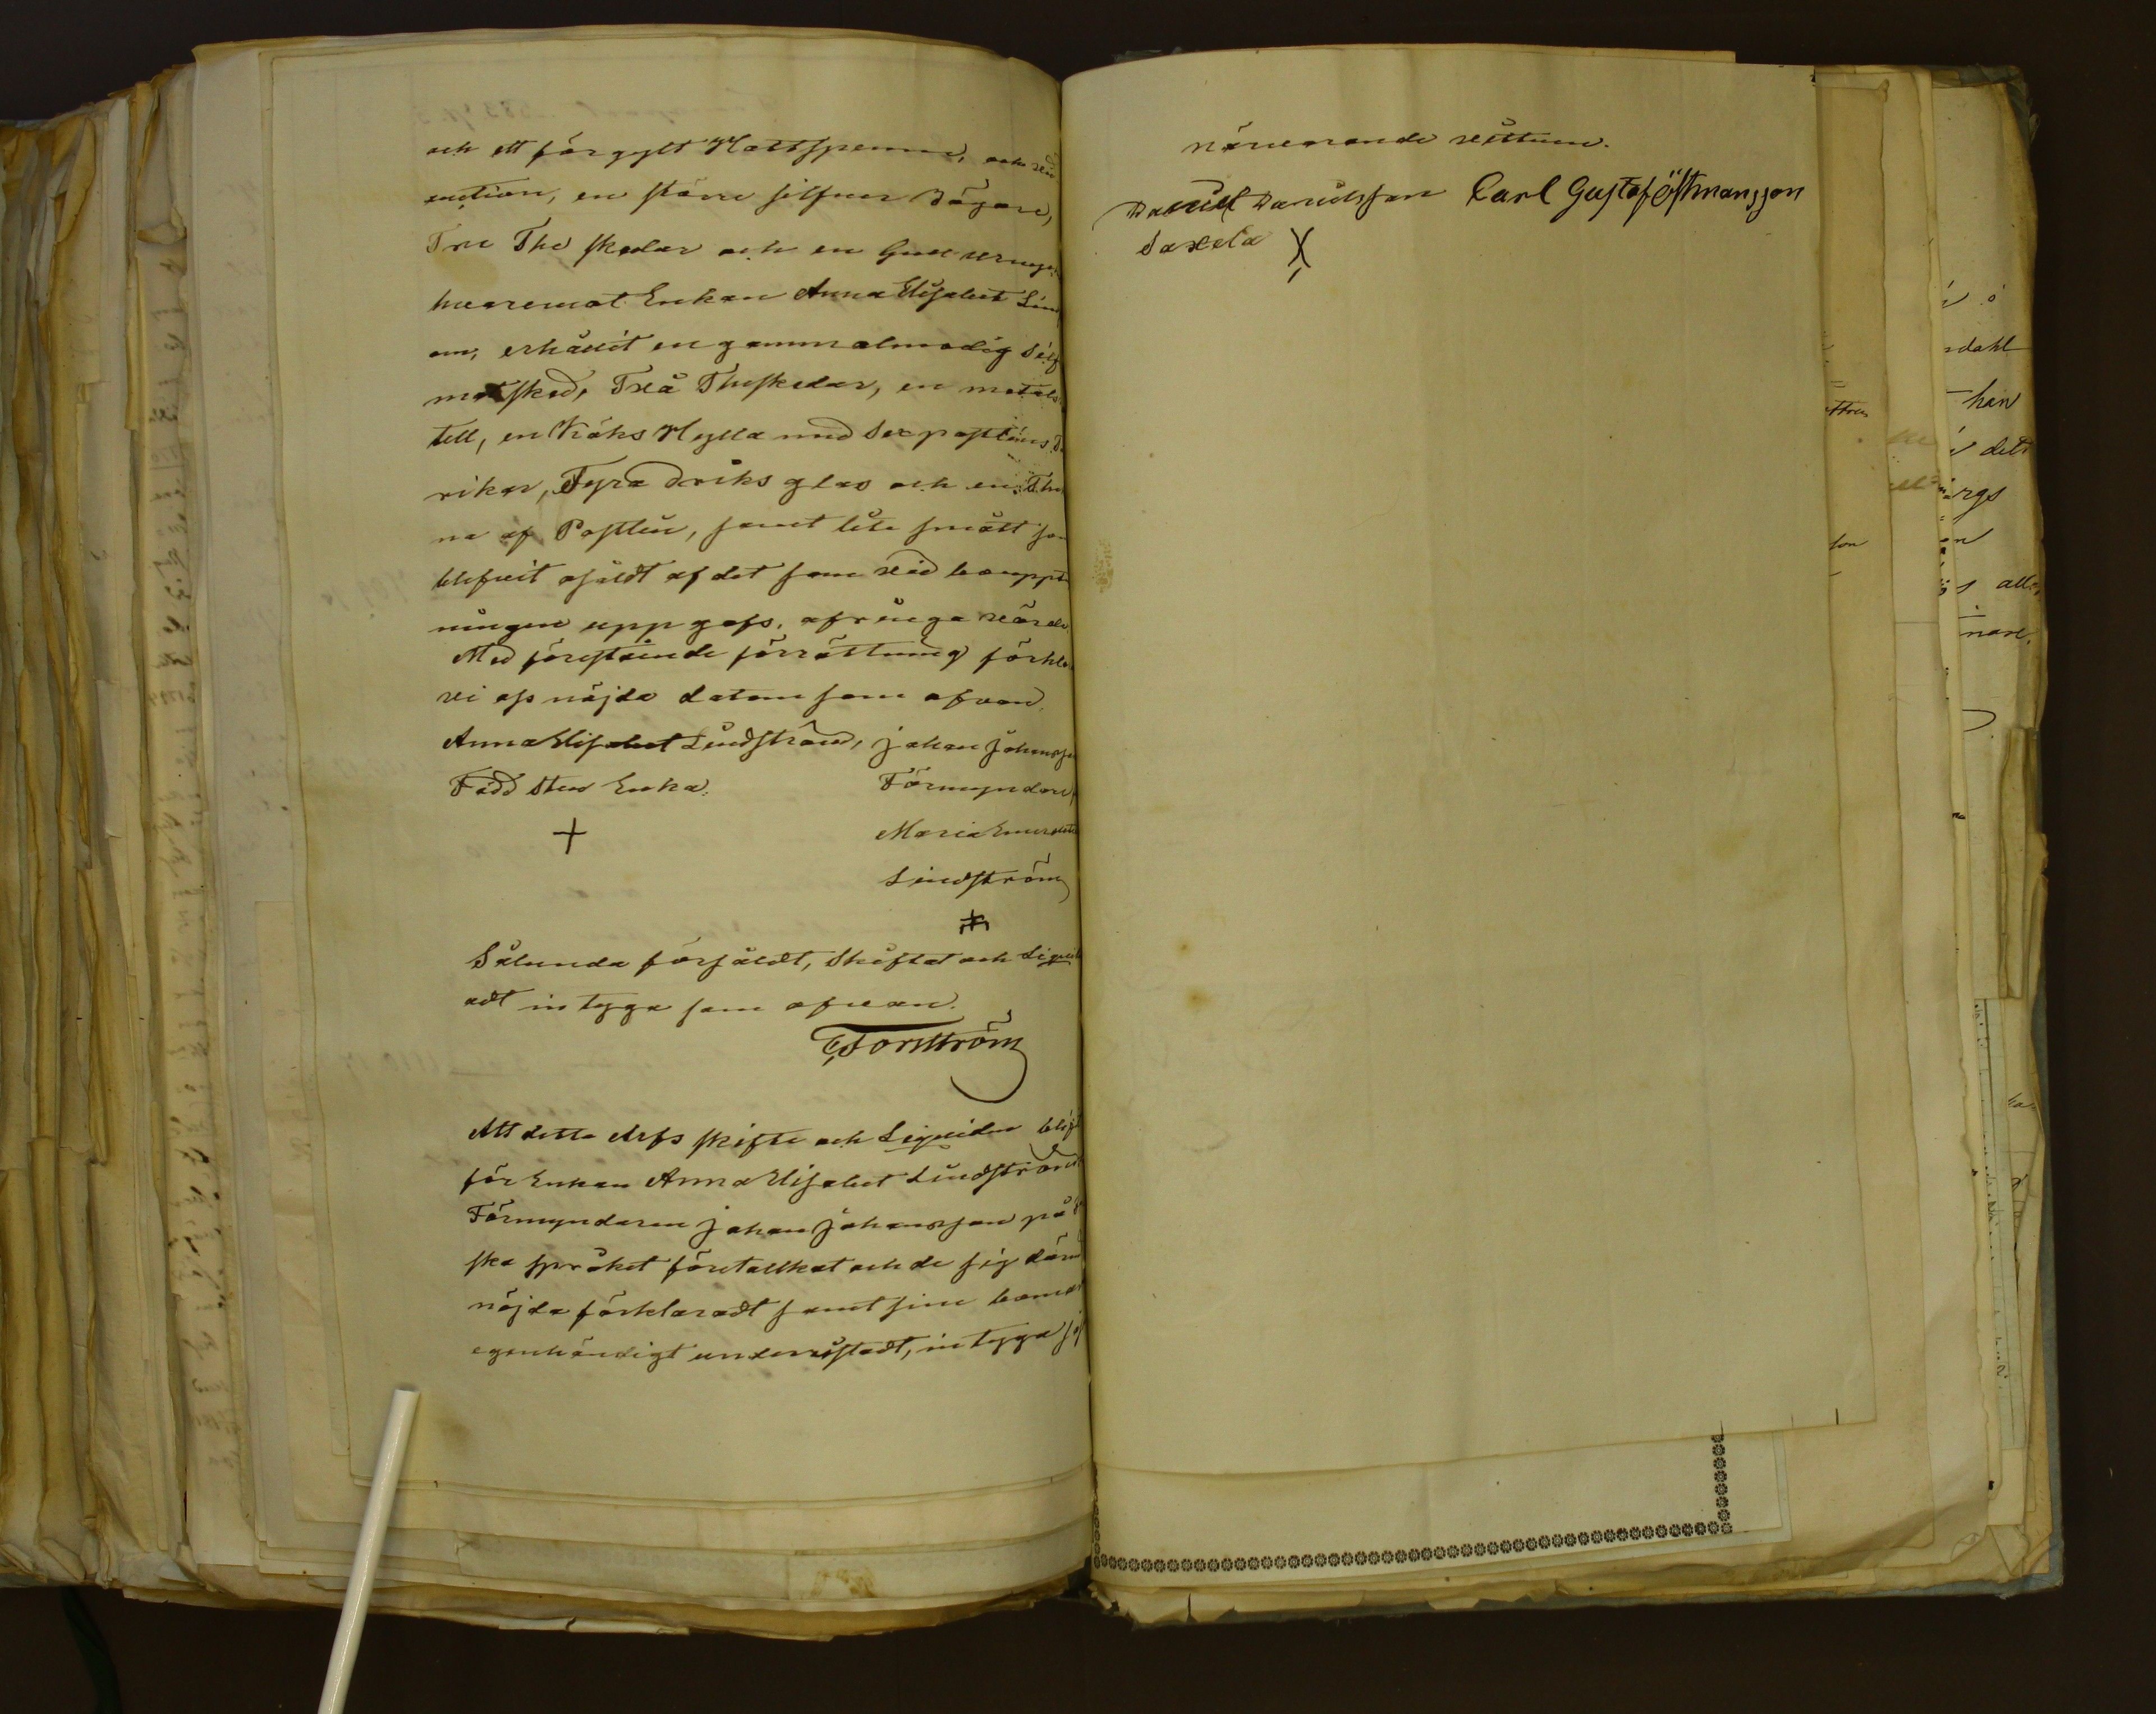 och ett förgylt Hattspenne, och vid
auction, en större silfver Bägare,
Tre The skedar och en
hvaremot Enkan Anna Elisabet Lind
om, erhållit en gammalmodig Silf
matsked, Två Theskedar, en metals
tell, en Köks Hylla med Sex postlins T
rikar, Fyra Driks glas och en The
na af Postlin, samt lite smått som
blefvit osåldt af det som vid bouppte
ningen uppgafs, af ringa värde
Med förestående förrättning förkla
vi oss nöjda datom som ofvan.
Anna Elisabet Lindström, Johan Johansson
Född Sten Enka. Förmyndare
+ Maria
Lindström
Sålunda försåldt, Skiftat och Liqvid
adt intyga som ofvan.
Torström
Att detta Arfs skifte och Liqviden blifvit
för Enkan Anna Elisabet Lindström
Förmyndaren Johan Johansson på
ska språket företallkat och de sig därm
nöjda förklaradt samt sine bomär
egenhändigt underristadt, intyga
närvarande vittnen.
Daniel Danielsson Carl Gustaf Östmansson
Saxela